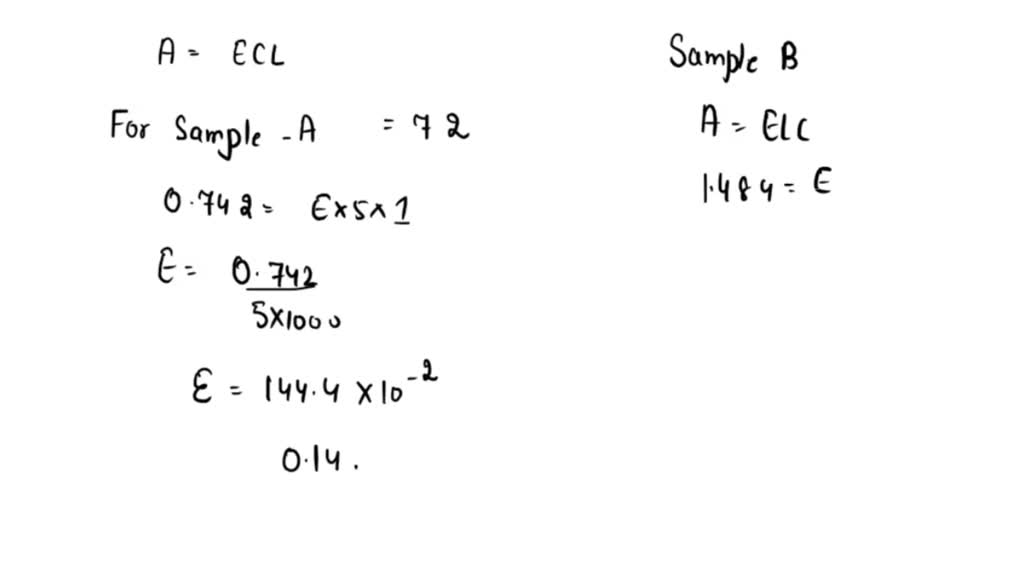 A = ECL
For Sample - A = 72
0.742 = E×5×1
E = 0.742
5×1000
E = 144.4 ×10⁻²
0.14.
Sample B
A = ELC
1.484 = E